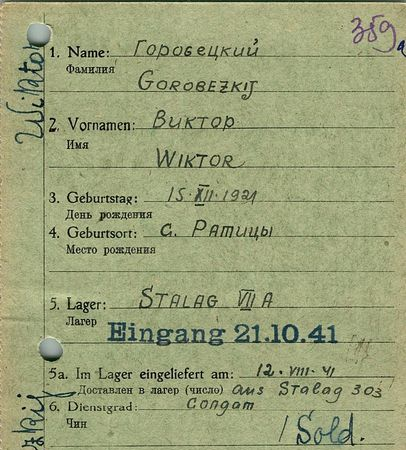 359
1. Name: Горобецкий
Фамилия
GOROBEZKIJ
2. Vornamen: Виктор
Имя
WIKTOR
3. Geburtstag: 15.XII.1921
День рождения
4. Geburtsort: с. Ратицы
Место рождения
5. Lager: STALAG VII A
Лагер
Eingang 21.10.41
5a. Im Lager eingeliefert am: 12.VIII.41
Доставлен в лагер (число) aus Stalag 303
6. Dienstgrad: Солдат
Чин
/ Sold.
Wiktor